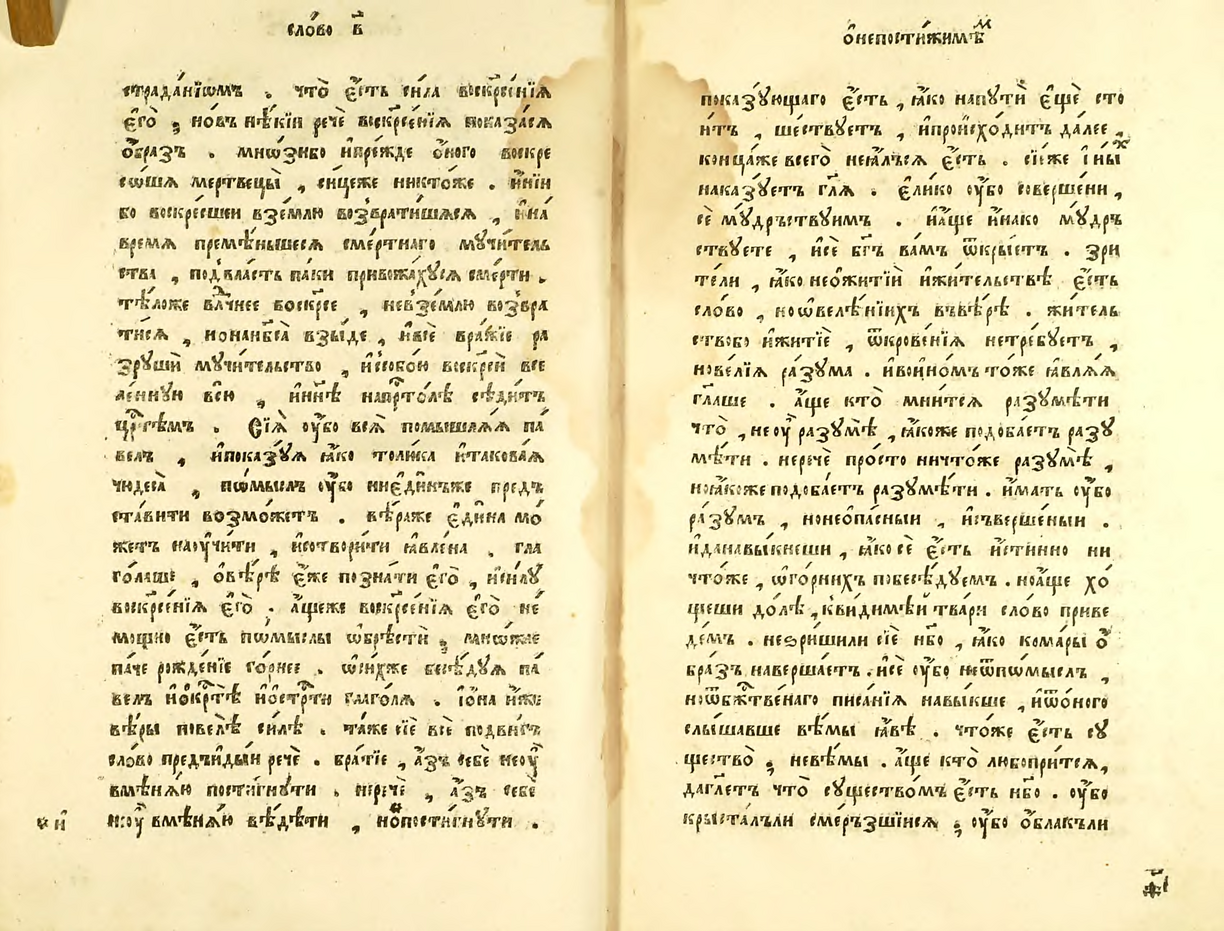 сло́во в҃
страда́нїѡмъ . что̀ є҆́сть си́ла воскр҃се́нїѧ
є҆го̀ , но́въ нѣ́кїи речѐ воскр҃се́нїѧ показа́сѧ
ѻ҆́бразъ . мно́зибо и҆пре́жде ѻ҆́ного воскре
со́шѧ мертвецы̀ , си́цеже никто́же . и҆нїи
бо воскре́сшеи взе́млю возврати́шасѧ , и҆на̀
времѧ премѣ́ньшесѧ сме́ртнаго мучи́тель
ства , по́двласть па́ки привожа́хꙋсѧ сме́рти .
тѣ́ложе влⷣчнее воскр҃се , невзе́млю возвра
ти́сѧ , нонанб҃са̀ взы́де , и҆всѐ вра́жїе ра
зрꙋшѝ мꙋчи́тельство , и҆собо́ю воскр҃сѝ все
ле́ннꙋю всю̀ , и҆нн҃ѣ напрⷭ҇то́лѣ сѣди́тъ
црⷭ҇тѣмъ . Сїѧ̀ ᲂу҆́бо всѧ̀ помышлѧ́ѧ па́
велъ , и҆показꙋ́ѧ ꙗ҆́ко толи́ка и҆такова́ѧ
чюдеса̀ , по́мыслъ ᲂу҆́бо ниє҆ди́нъже предъ
ста́вити возмо́жетъ . вѣ́раже є҆ди́на мо́
жетъ наᲂу҆чи́ти , и҆сотвори́ти ꙗ҆вле́на . гла
го́лаше , ѻ҆вѣ́рѣ є҆́же позна́ти є҆го̀ , и҆си́лꙋ
воскр҃се́нїѧ є҆го̀ . а҆́щеже воскр҃се́нїѧ є҆го̀ не
мо́щно є҆́сть по́мыслы ѡ҆брѣстѝ , мно́жае
па́че рожде́нїе го́рнее . ѡ҆ни́хже бесѣ́дꙋѧ па́
велъ и҆ѻ҆крⷭ҇тѣ̀ и҆ѻ҆стрⷭ҇ти глаго́лѧ . і҆ѻ҆на̀ и҆́же
вѣ́ры повелѣ̀ си́лѣ . та́же сїѐ всѐ подви́гъ
сло́во предъи́дыи речѐ . бра́тїе , а҆́зъ себѐ неᲂу҆̀
вмѣнѧ́ю пости́гнꙋти . неречѐ , а҆́зъ себѐ
неᲂу҆̀ вмѣнѧ́ю вѣ́дѣти , но̀пости́гнꙋти .
* и҆
ѻ҆непостижи́мѣⷨ
показꙋ́ющаго є҆́сть , ꙗ҆́ко напꙋтѝ є҆щѐ сто
и́тъ , ше́ствꙋетъ , и҆происхо́дитъ да́лее ,
конца́же всего̀ неꙗ҆́лъсѧ є҆́сть . сїѝже і҆ ны́ⷯ
наказꙋ́етъ гл҃ѧ . є҆ли́ко ᲂу҆́бо соверше́ни ,
сѐ мꙋ́дръствꙋимъ . и҆а҆́ще и҆на́ко мꙋ́дръ
ствꙋете , и҆сѐ бг҃ъ ва́мъ ѿкры́етъ . зри́
тели , ꙗ҆́ко неѻ҆житїѝ и҆жи́тельствѣ є҆́сть
сло́во , ноѡ҆веле́нїихъ въвѣ́рѣ . жи́тель
ствобо и҆житїѐ , ѿкрове́нїѧ нетре́бꙋетъ ,
новелїѧ ра́зꙋма . и҆вои́номъ то́же ꙗ҆влѧ́ѧ
гл҃аше . а҆́ще кто̀ мни́тсѧ разꙋмѣ́ти
что̀ , неᲂу҆̀ разꙋмѣ̀ , ꙗ҆́коже подоба́етъ разꙋ
мѣ́ти . неречѐ про́сто ничто́же разꙋмѣ̀ ,
ноꙗ҆́коже подоба́етъ разꙋмѣ́ти . и҆́мать ᲂу҆́бо
ра́зꙋмъ , нонеѻ҆па́сныи , и҆съверше́ныи .
и҆данавы́кнеши , ꙗ҆́ко сѐ є҆́сть и҆́стинно ни
что́же , ѡ҆го́рнихъ побесѣ́дꙋемъ . ноа҆́ще хо́
щеши до́лѣ , кви́димѣй тва́ри сло́во приве
де́мъ . незри́шили сїѐ нб҃о , ꙗ҆́ко кома́ры ѻ҆́
бразъ наверша́етъ . и҆сѐ ᲂу҆́бо неѿпо́мыслъ ,
ноѿбжⷭ҇твенаго писа́нїѧ навы́кше , и҆ѿѻ҆́ного
слы́шавше вѣ́мы ꙗ҆́вѣ . что́же є҆́сть сꙋ
щество̀ , невѣ́мы . а҆́ще кто̀ любопри́тсѧ ,
даглетъ что̀ сꙋщество́мъ є҆́сть нб҃о . ᲂу҆́бо
крыста́лъли сме́ръзшїйсѧ , ᲂу҆́бо ѻ҆́блакъли